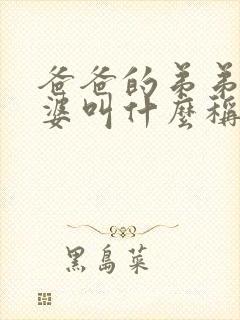 爸爸的弟弟
婆叫什麼稱
黑島菜